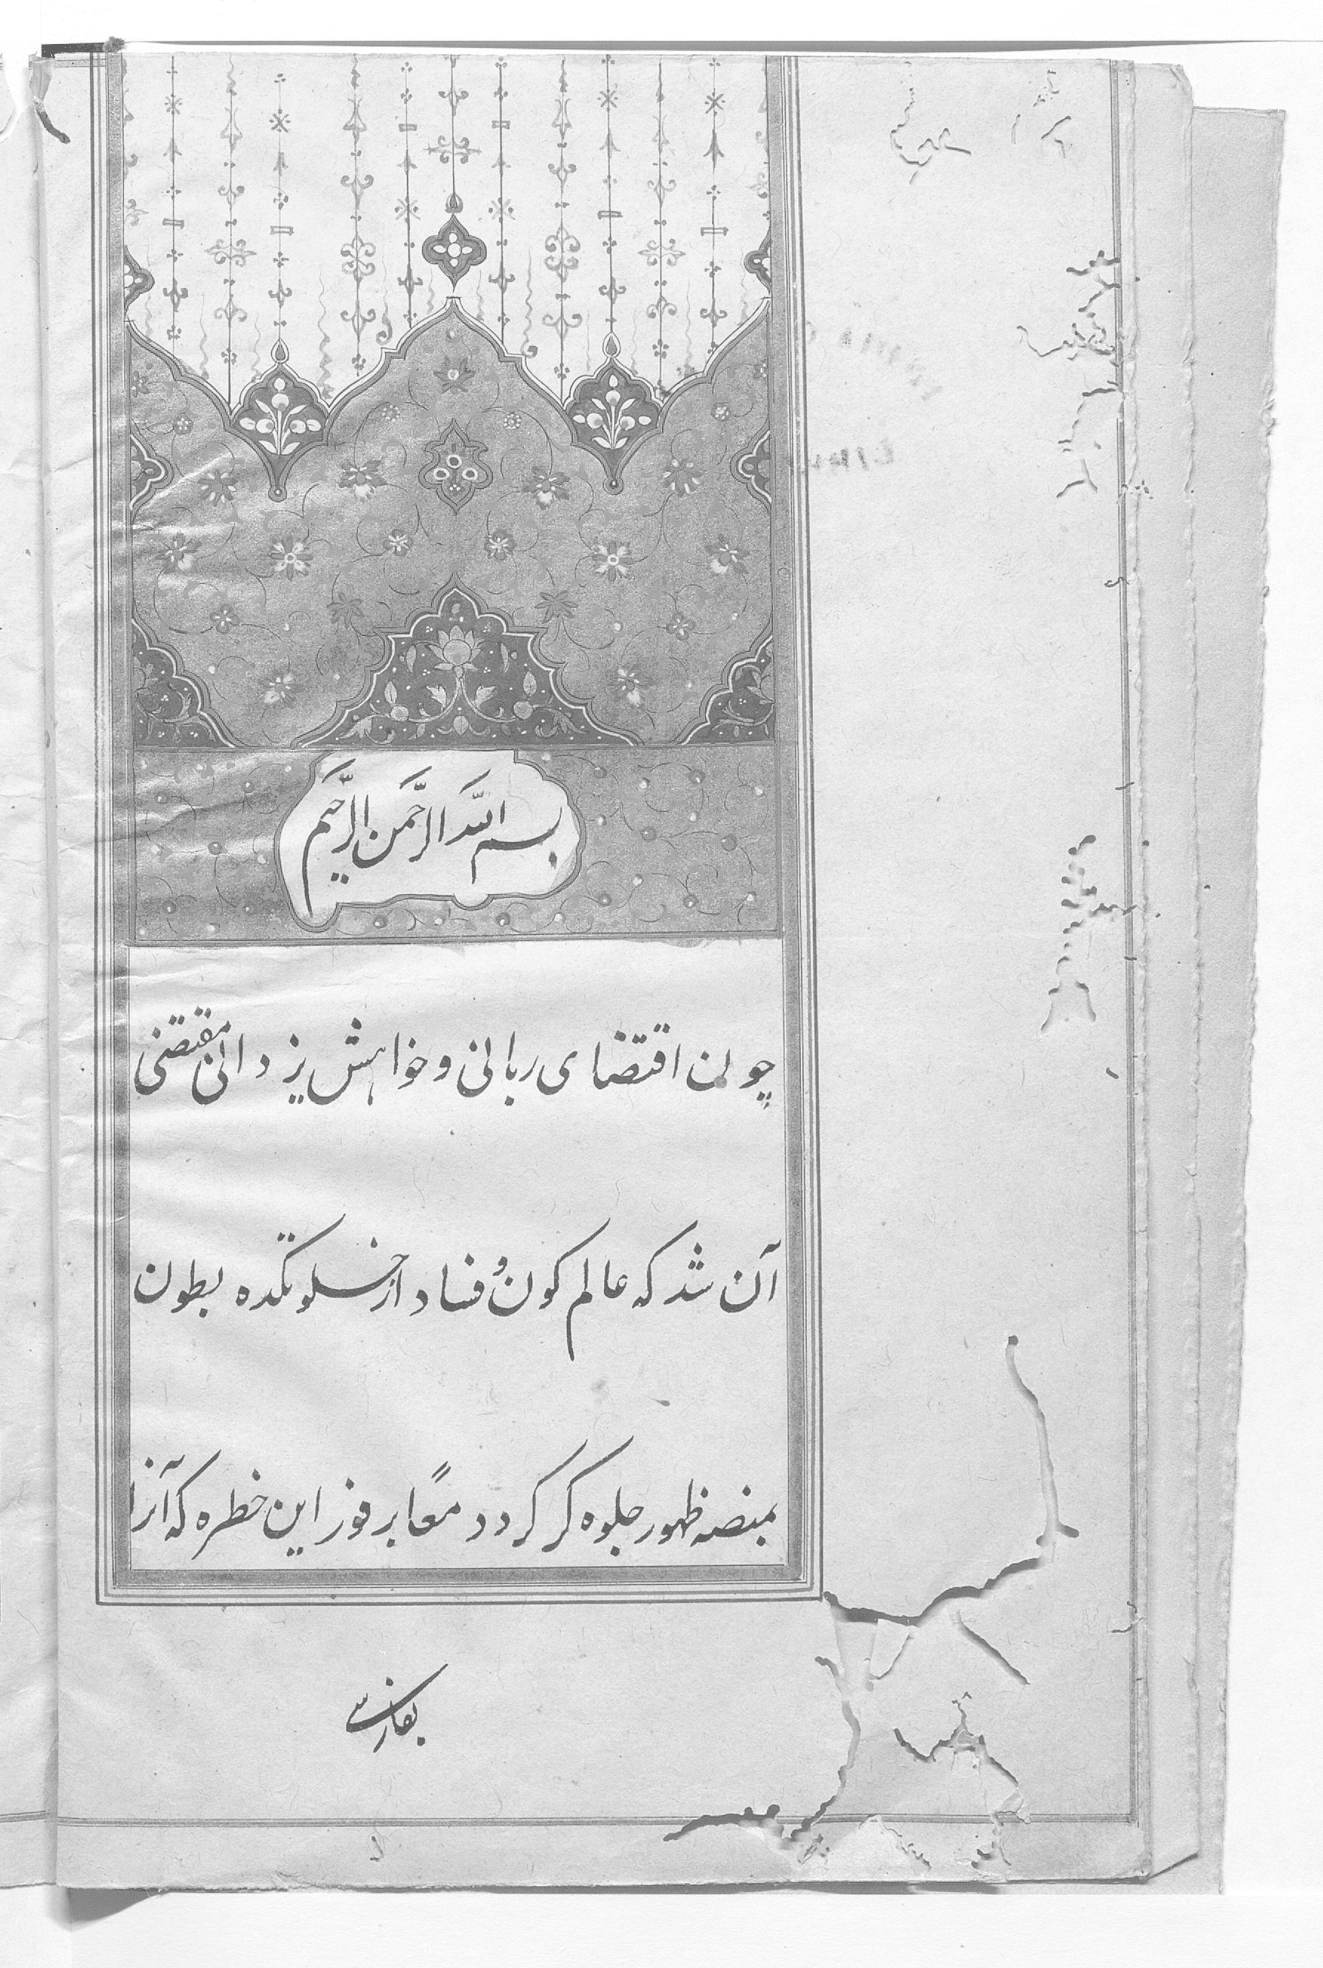 بسم الله الرحمن الرحیم
چون اقتضای ربانی و خواهش یزدانی مقتضی
آن شد که عالم کون و فساد از خلوتکده بطون
بمنصه ظهور جلوه گر گردد معا بر فوز این خطره که آنرا
بفارسی